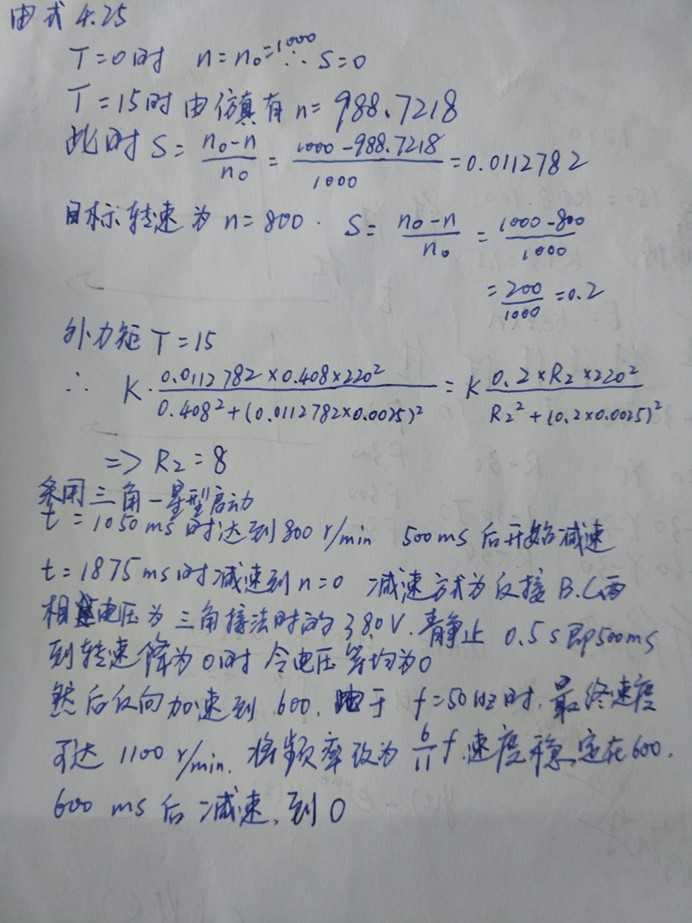 由式 4.25
T=0时 n=n₀=1000 ∴ S=0
T=15时由仿真有 n= 988.7218
此时 S= (n₀-n)/n₀ = (1000-988.7218)/1000 =0.0112782
目标转速为 n=800. S= (n₀-n)/n₀ = (1000-800)/1000
= 200/1000 =0.2
外力矩 T=15
∴ K· (0.0112782×0.408×220²)/(0.408²+(0.0112782×0.0025)²) = K (0.2×R₂×220²)/(R₂²+(0.2×0.0025)²)
=> R₂=8
采用三角-星型启动
t=1050ms时达到800 r/min 500ms后开始减速
t=1875ms时减速到n=0 减速方式为反接B.C两
相 电压为三角接法时的380V. 静止 0.5s即500ms
到转速降为0时 令电压 均为0
然后反向加速到 600, 由于 f=50Hz时. 最终速度
可达 1100 r/min. 将频率改为 6/11 f. 速度稳定在600.
600 ms 后减速, 到0